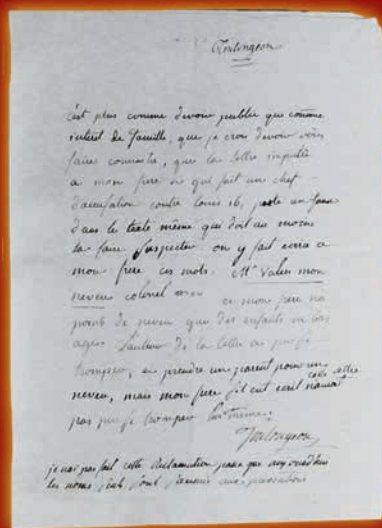 Toulongeon
c'est plus comme devoir public que comme
interet de famille, que je crois devoir vous
faire connaitre, que la lettre imputée
a mon frere et qui fait un chef
d'accusation contre Louis 16, porte un faux
dans le texte même qui doit au moins
la faire suspecter on y fait ecrire a
mon frere ces mots. Mr Valeri mon
neveu colonel et mon frere na
point de neveu que des enfants en bas
ages L'auteur de la lettre a pu se
tromper, et prendre un parent pour un
neveu, mais mon frere s'il eut ecrit cette lettre nauroit
pas pu se tromper lui même.
Toulongeon
je nai pas fait cette declamation parce que
les noms